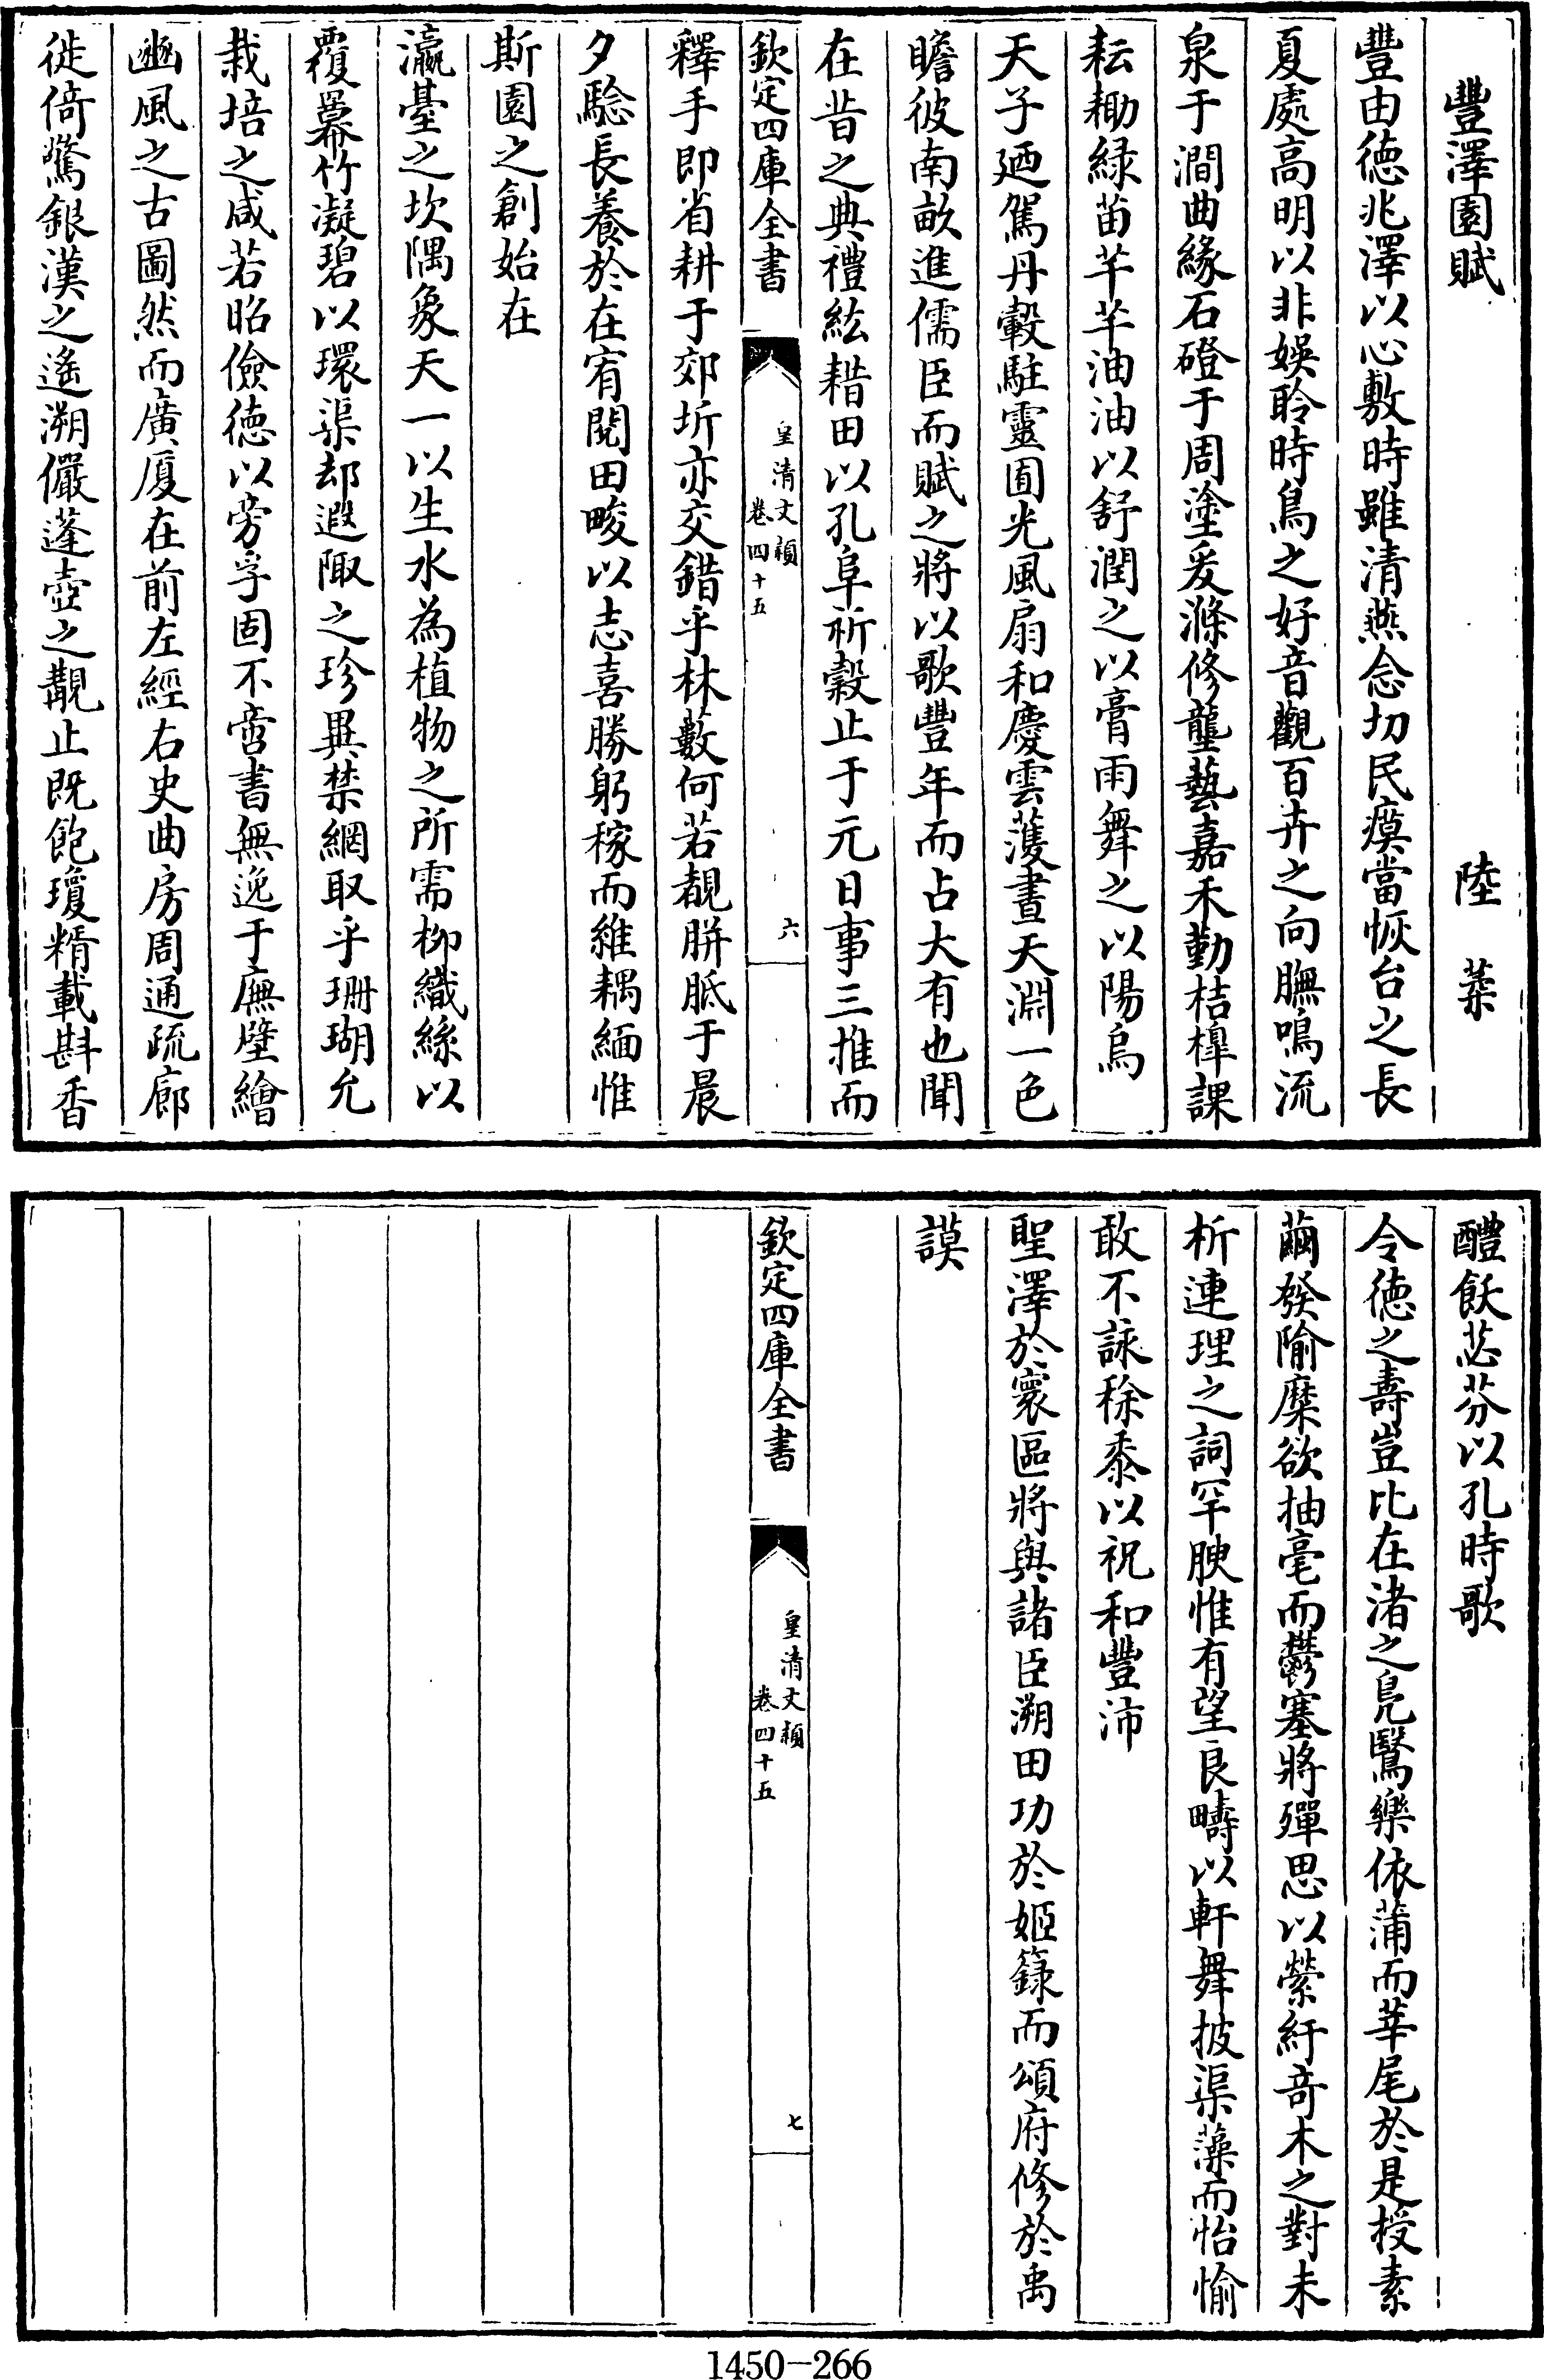 豐澤園賦　陸　葇
豐由德兆澤以心敷時雖清燕念切民瘼當恢台之長
夏處高明以非娛聆時鳥之好音觀百卉之向膴鳴流
泉于澗曲緣石磴于周塗爰滌修壟藝嘉禾勤桔槔課
耘耡綠苗芊芊油油以舒潤之以膏雨舞之以陽烏
天子廼駕丹轂駐靈囿光風扇和慶雲濩晝天淵一色
瞻彼南畝進儒臣而賦之將以歌豐年而占大有也聞
在昔之典禮紘耤田以孔阜祈穀止于元日事三推而
欽定四庫全書
皇清文穎
卷四十五
六
釋手即省耕于郊圻亦交錯乎林藪何若覩胼胝于晨
夕驗長養於在宥閱田畯以志喜勝躬稼而維耦緬惟
斯園之創始在
瀛臺之坎隅象天一以生水為植物之所需柳織絲以
覆幕竹凝碧以環渠却遐陬之珍異禁網取乎珊瑚允
栽培之咸若昭儉德以旁孚固不啻書無逸于廡壁繪
豳風之古圖然而廣厦在前左經右史曲房周通疏廊
徙倚驚銀漢之遙溯儼蓬壺之覯止既飽瓊糈載斟香
醴飫苾芬以孔時歌
令德之壽豈比在渚之鳧鷖樂依蒲而莘尾於是授素
繭發隃糜欲抽毫而鬱塞將殫思以縈紆奇木之對未
析連理之詞罕腴惟有望良疇以軒舞披渠藻而怡愉
敢不詠稌黍以祝和豐沛
聖澤於寰區將與諸臣溯田功於姬籙而頌府修於禹
謨
欽定四庫全書
皇清文穎
卷四十五
七
1450—266